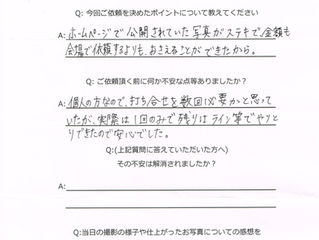 Q: 今回ご依頼を決めたポイントについて教えてください
A: ホームページで公開されていた写真がステキで、金額も
会場で依頼するよりも、おさえることができたから。
Q: ご依頼頂く前に何か不安な点等ありましたか?
A: 個人の方なので、打ち合せを数回必要かと思って
いたが、実際は1回のみで残りはライン等でやりと
りできたので安心でした。
Q:(上記質問に答えていただいた方へ)
その不安は解消されましたか?
A:
Q:当日の撮影の様子や仕上がったお写真についての感想を